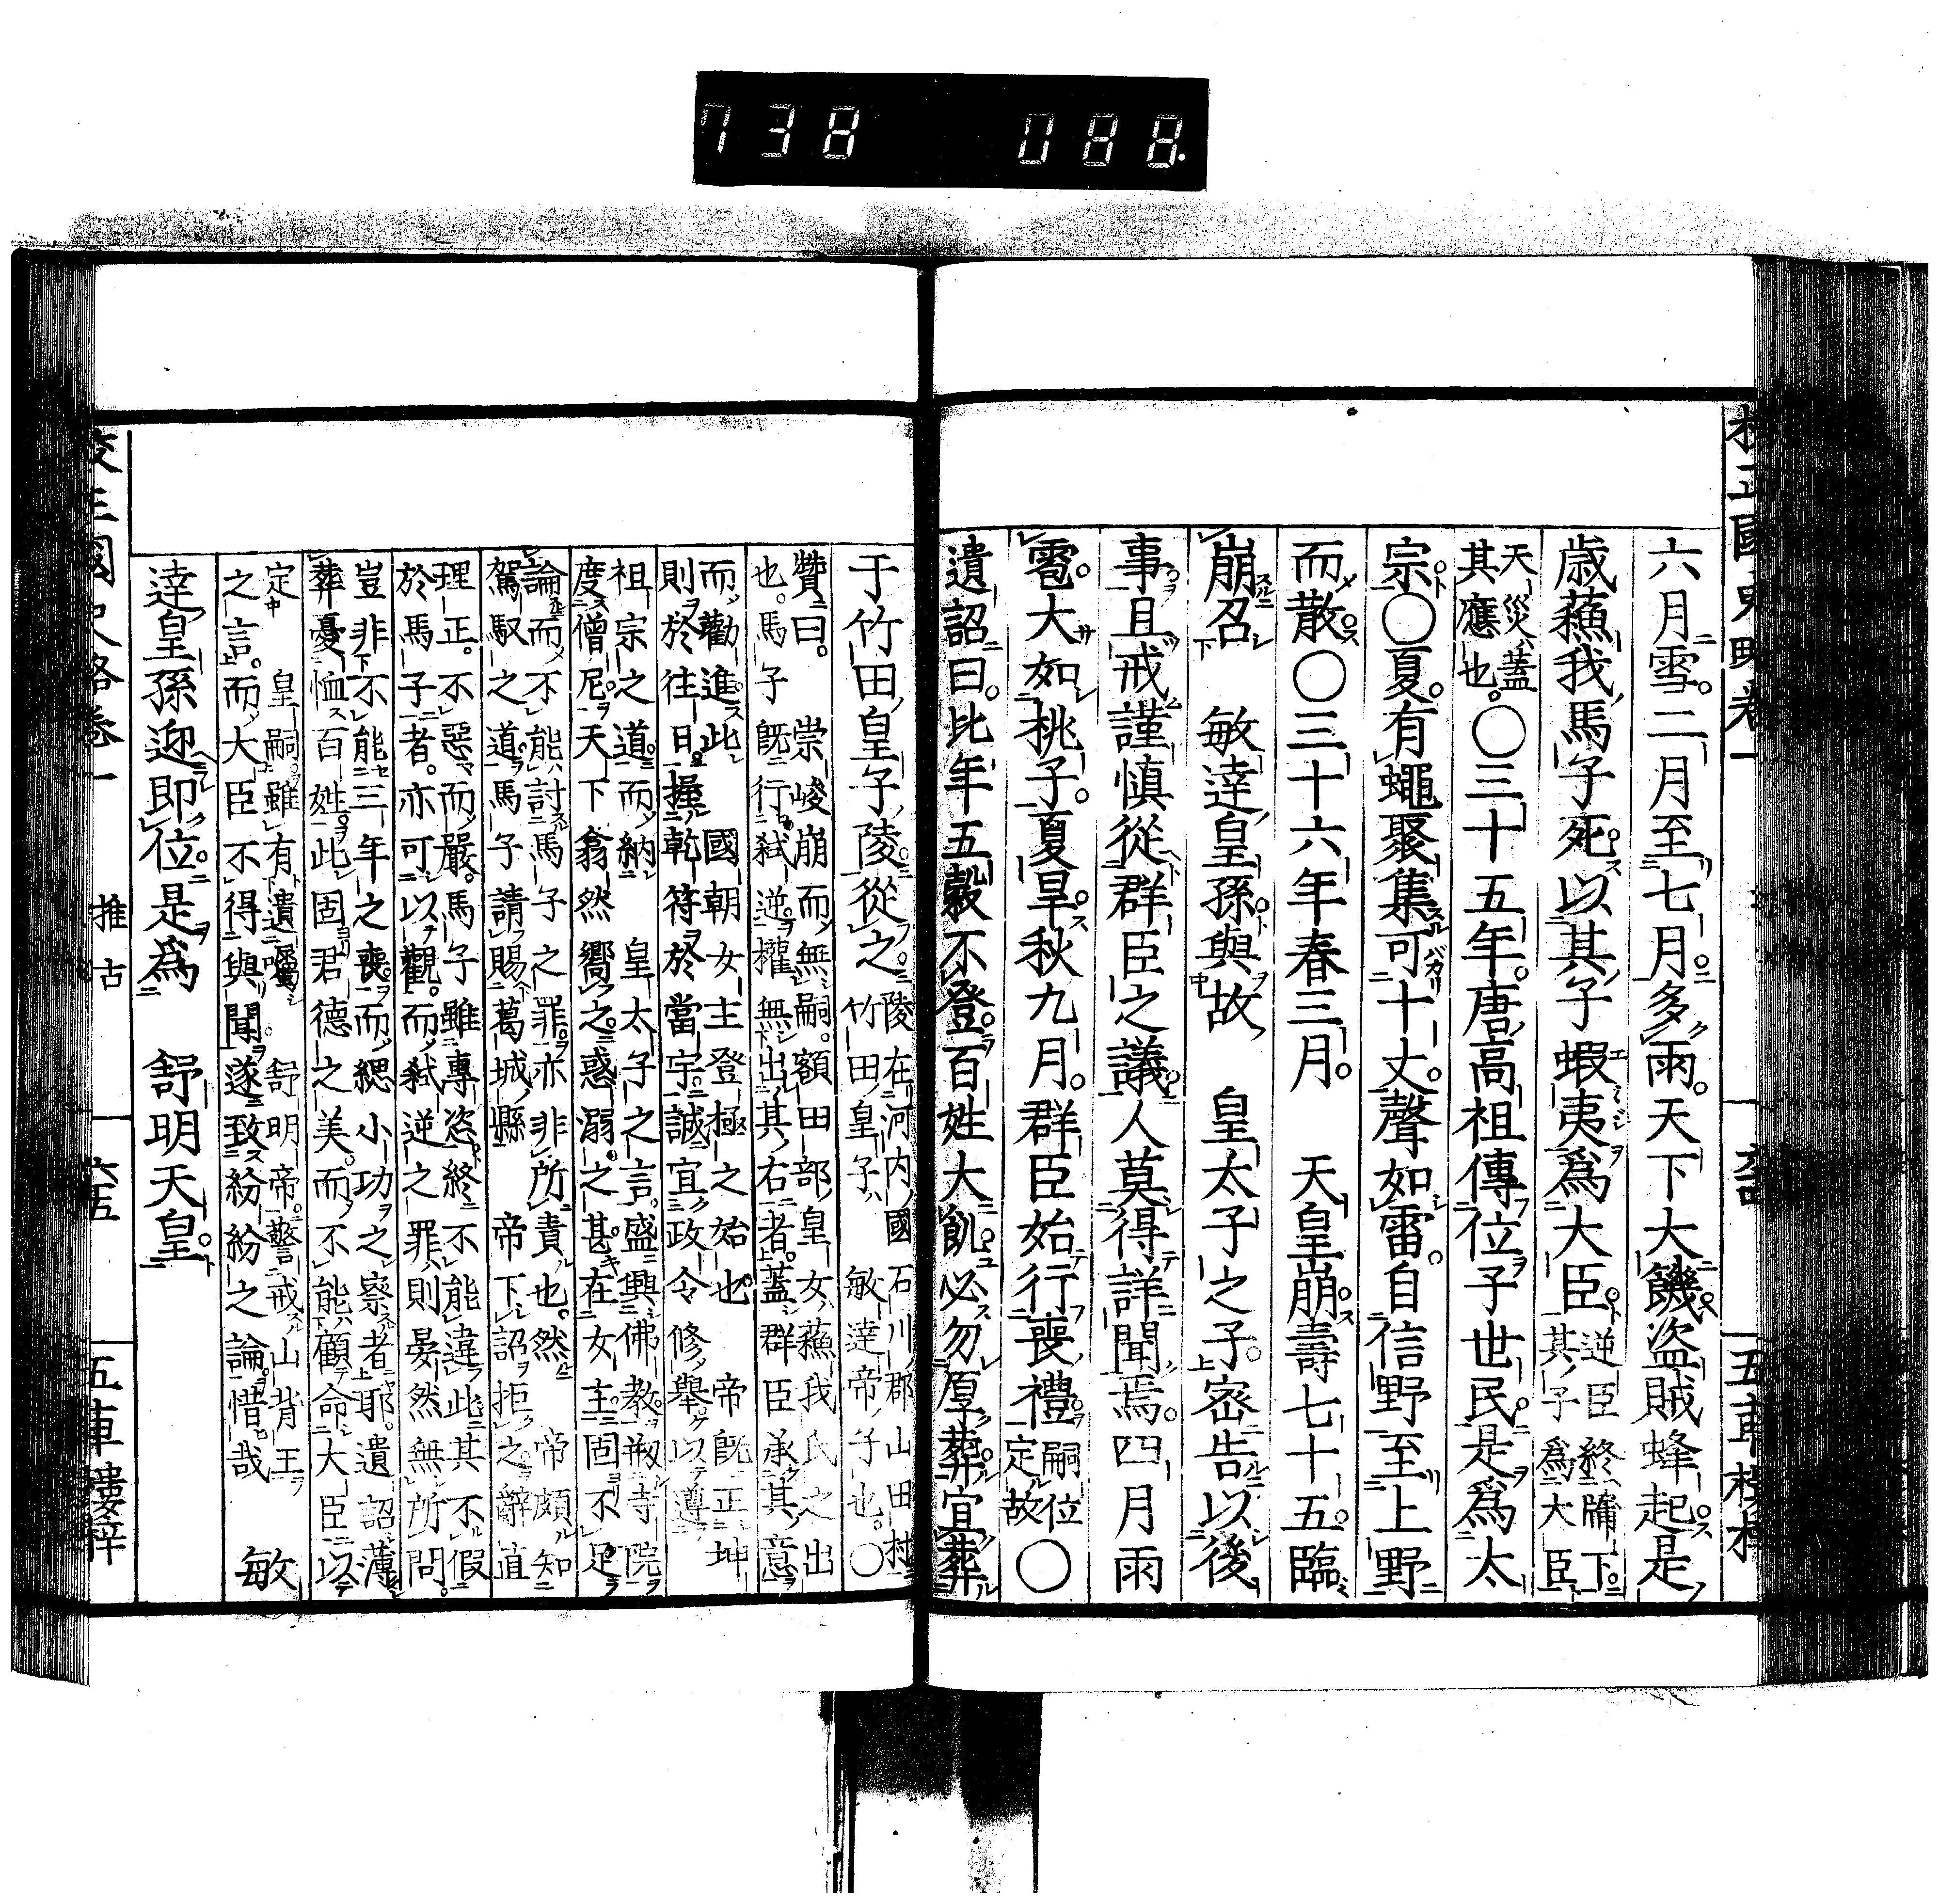 738 088.
校正國史略卷一
五車樓梓
六月雪。二月至七月多雨。天下大饑盜賊蜂起是
歳蘇我馬子死以其子蝦夷爲大臣 逆臣終牖下其子爲大臣
天災蓋其應也。〇三十五年。唐高祖傳位子世民是爲太
宗〇夏。有蠅聚集可十丈。聲如雷。自信野至上野
而散〇三十六年春三月。 天皇崩壽七十五。臨
崩召 敏達皇孫與故 皇太子之子。密告以後
事且戒謹慎從群臣之議人莫得詳聞焉。四月雨
雹。大如桃子。夏旱秋九月。群臣始行喪禮 嗣位定故〇
遺詔曰。比年五穀不登百姓大飢必勿厚葬宜葬
于竹田皇子陵從之 陵在河内國石川郡山田村竹田皇子敏達帝子也。〇
贊曰。崇峻崩而無嗣。額田部皇女蘇我氏之出
也。馬子既行弑逆權無出其右者。蓋群臣承其意
而勸進此 國朝女主登極之始也 帝既正坤
則於往日握乾符於當宇誠宜政令修舉以遵
祖宗之道而納 皇太子之言。盛興佛教剏寺院
度僧尼天下翕然嚮之惑溺之甚在女主固不足
論而不能討馬子之罪亦非所責也。然 帝頗知
駕馭之道馬子請賜葛城縣 帝下詔拒之辭直
理正。不惡而嚴。馬子雖專恣。終不能違此其不假
於馬子者。亦可以觀。而弑逆之罪則晏然無所問。
豈非不能三年之喪而緦小功之察者耶。遺詔薄
葬憂恤百姓此固君德之美而不能顧命大臣以
定 皇嗣雖有遺囑 舒明帝警戒山背王
之言。而大臣不得與聞遂致紛紛之論惜哉 敏
達皇孫迎即位。是爲 舒明天皇。
校正國史略卷一 推古 五車樓梓